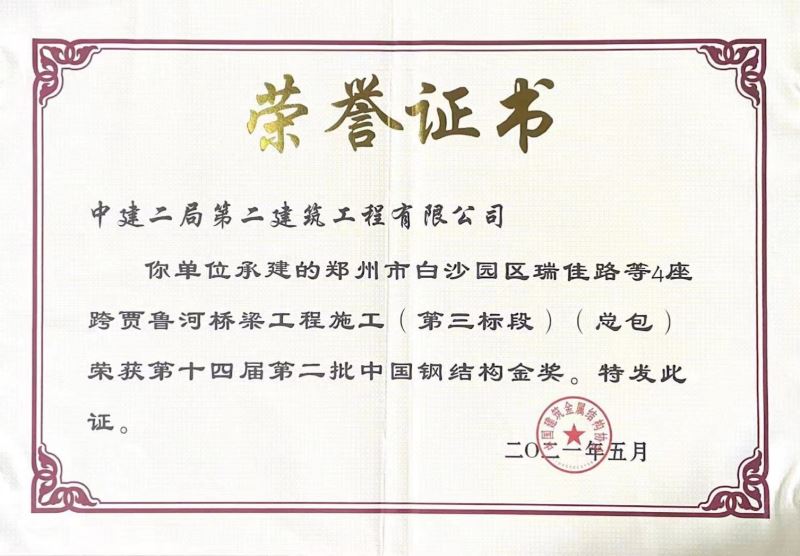 荣誉证书
中建二局第二建筑工程有限公司
你单位承建的郑州市白沙园区瑞佳路等4座
跨贾鲁河桥梁工程施工（第三标段）（总包）
荣获第十四届第二批中国钢结构金奖。特发此
证。
中国建筑金属结构协会
二〇二一年五月